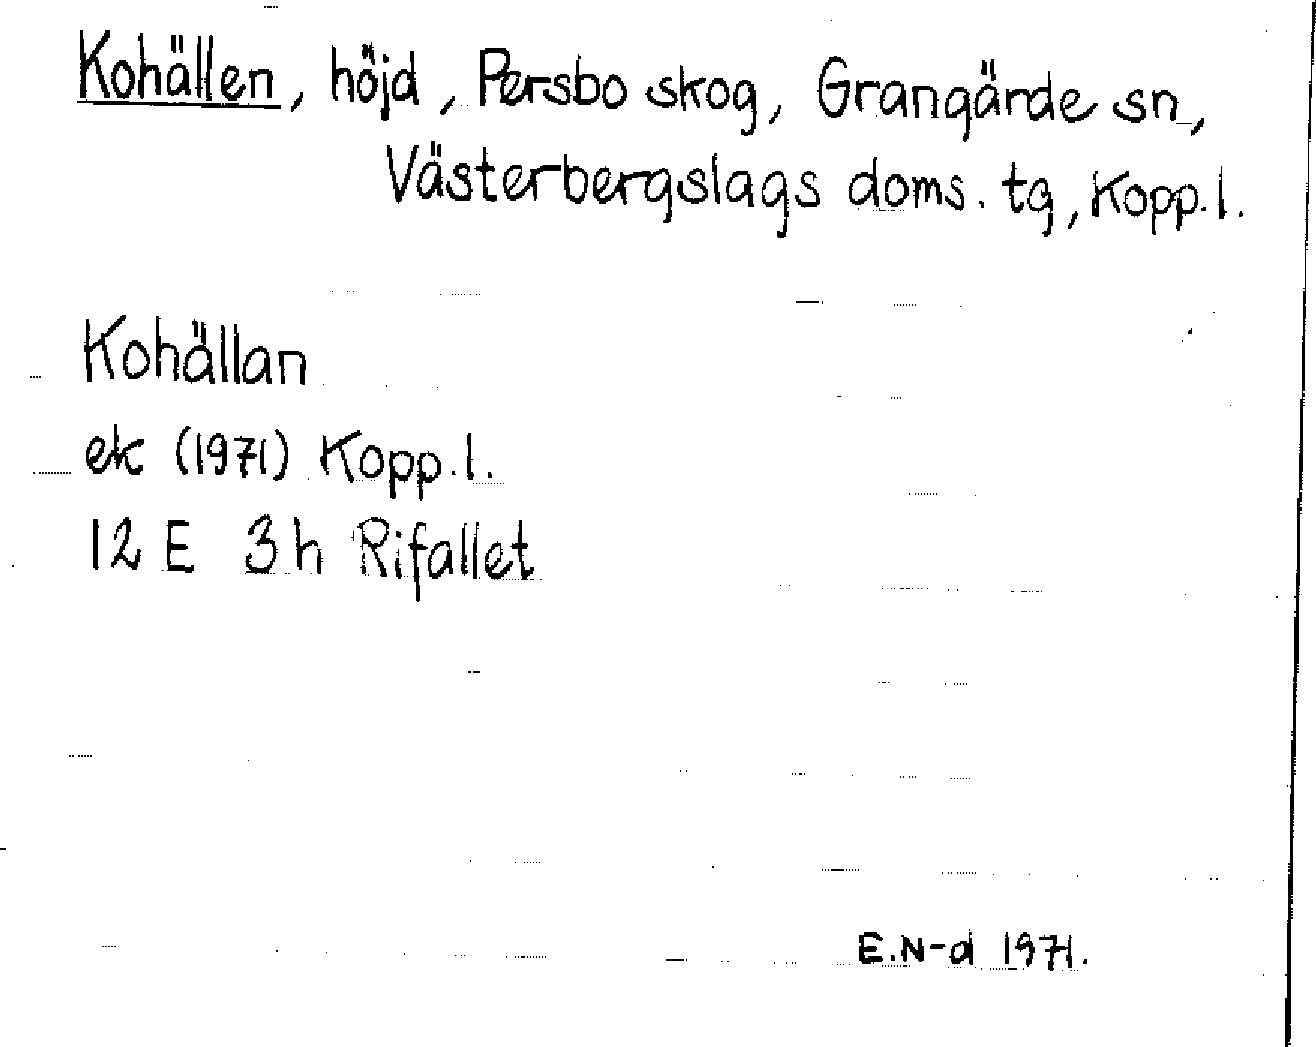 Kohällen, höjd, Persbo skog, Grangärde sn,
Västerbergslags doms. tg, Kopp. l.
Kohällan
ek (1971) Kopp. l.
12 E 3h Rifallet
E.N-d 1971.